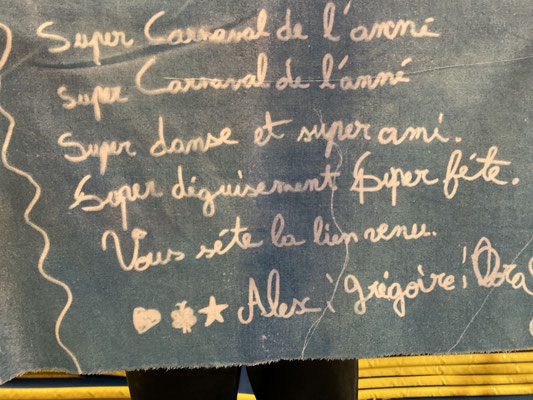 Super Carnaval de l'anné
Super Carnaval de l'anné
Super danse et super ami.
Soper déguisement Super fête.
Vous sête la lienvenu.
Alex ! grégoire ! Dora